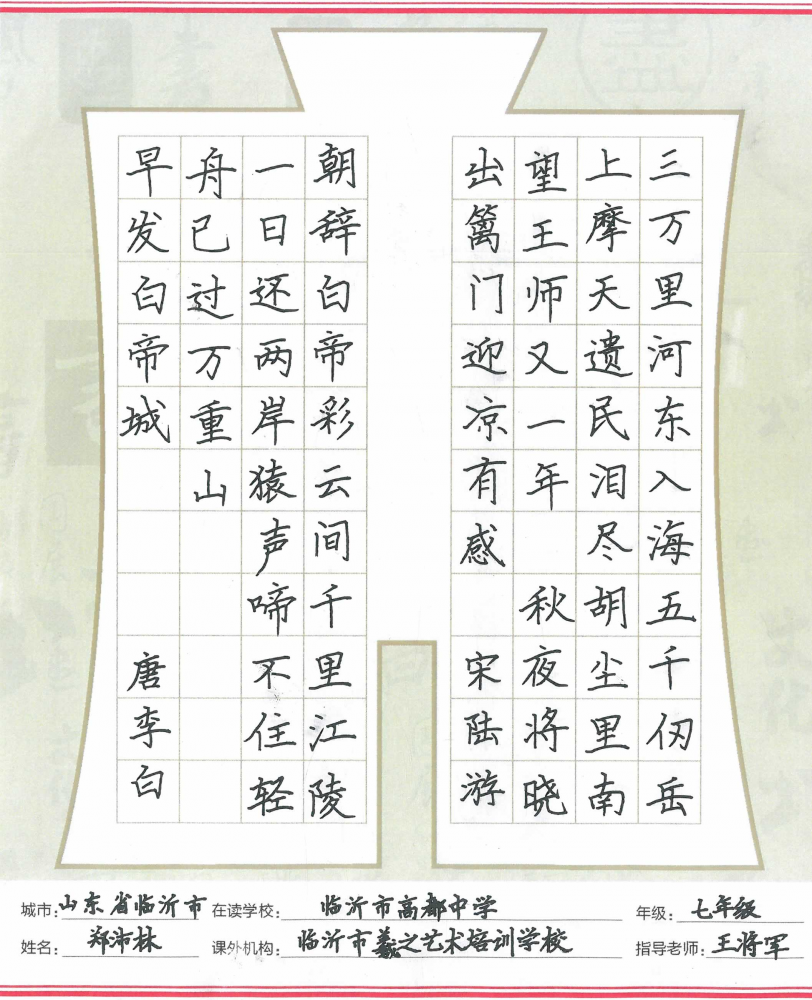 三万里河东入海五千仞岳
上摩天遗民泪尽胡尘里南
望王师又一年 秋夜将晓
出篱门迎凉有感 宋陆游
朝辞白帝彩云间千里江陵
一日还两岸猿声啼不住轻
舟已过万重山
早发白帝城 唐李白
城市:山东省临沂市 在读学校:临沂市高都中学 年级:七年级
姓名:郑沛林 课外机构:临沂市羲之艺术培训学校 指导老师:王将军